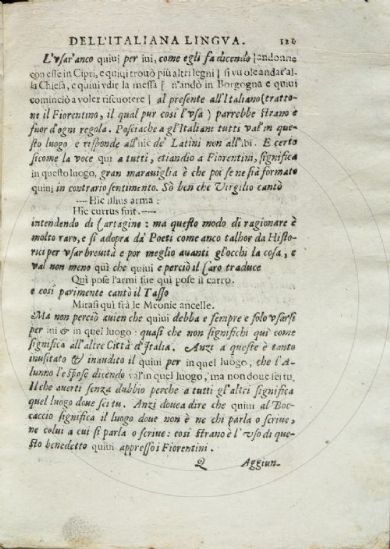 DELL'ITALIANA LINGVA. 126
L'vsar'anco quiui per iui, come egli fa dicendo | andonne
con esse in Cipri, e quiui trouò più altri legni | si vuole andar'al-
la Chiesa, e quiui vdir la messa | n'andò in Borgogna e quiui
cominciò a voler riscuotere | al presente all'Italiano (tratto-
ne il Fiorentino, il qual pur così l'vsa) parrebbe strano e
fuor d'ogni regola. Posciache a gl'Italiani tutti val'in que-
sto luogo e risponde all'hic de' Latini non all'ibi. E certo
sicome la voce qui a tutti, etiandio a Fiorentini, significa
in questo luogo, gran marauiglia è che poi se ne sia formato
quiui in contrario sentimento. Sò ben che Virgilio cantò
— Hic illius arma:
Hic currus fuit.—
intendendo di Cartagine: ma questo modo di ragionare è
molto raro, e si adopra da' Poeti come anco talhor da Histo-
rici per vsar breuità e por meglio auanti gl'occhi la cosa, e
val non meno quì che quiui e perciò il Caro traduce
Quì pose l'armi sue quì pose il carro.
e così parimente cantò il Tasso
Mirasi quì fra le Meonie ancelle.
Ma non perciò auien che quiui debba e sempre e solo vsarsi
per iui & in quel luogo: quasi che non significhi quì come
significa all'altre Città d'Italia. Anzi a queste è tanto
inusitato & inaudito il quiui per in quel luogo, che l'A-
lunno l'espose dicendo val'in quel luogo, ma non doue sei tu.
Il che auertì senza dubbio perche a tutti gl'altri significa
quel luogo doue sei tu. Anzi douea dire che quiui al Boc-
caccio significa il luogo doue non è ne chi parla o scriue,
ne colui a cui si parla o scriue: così strano è l'vso di que-
sto benedetto quiui appresso i Fiorentini.
Q Aggiun-